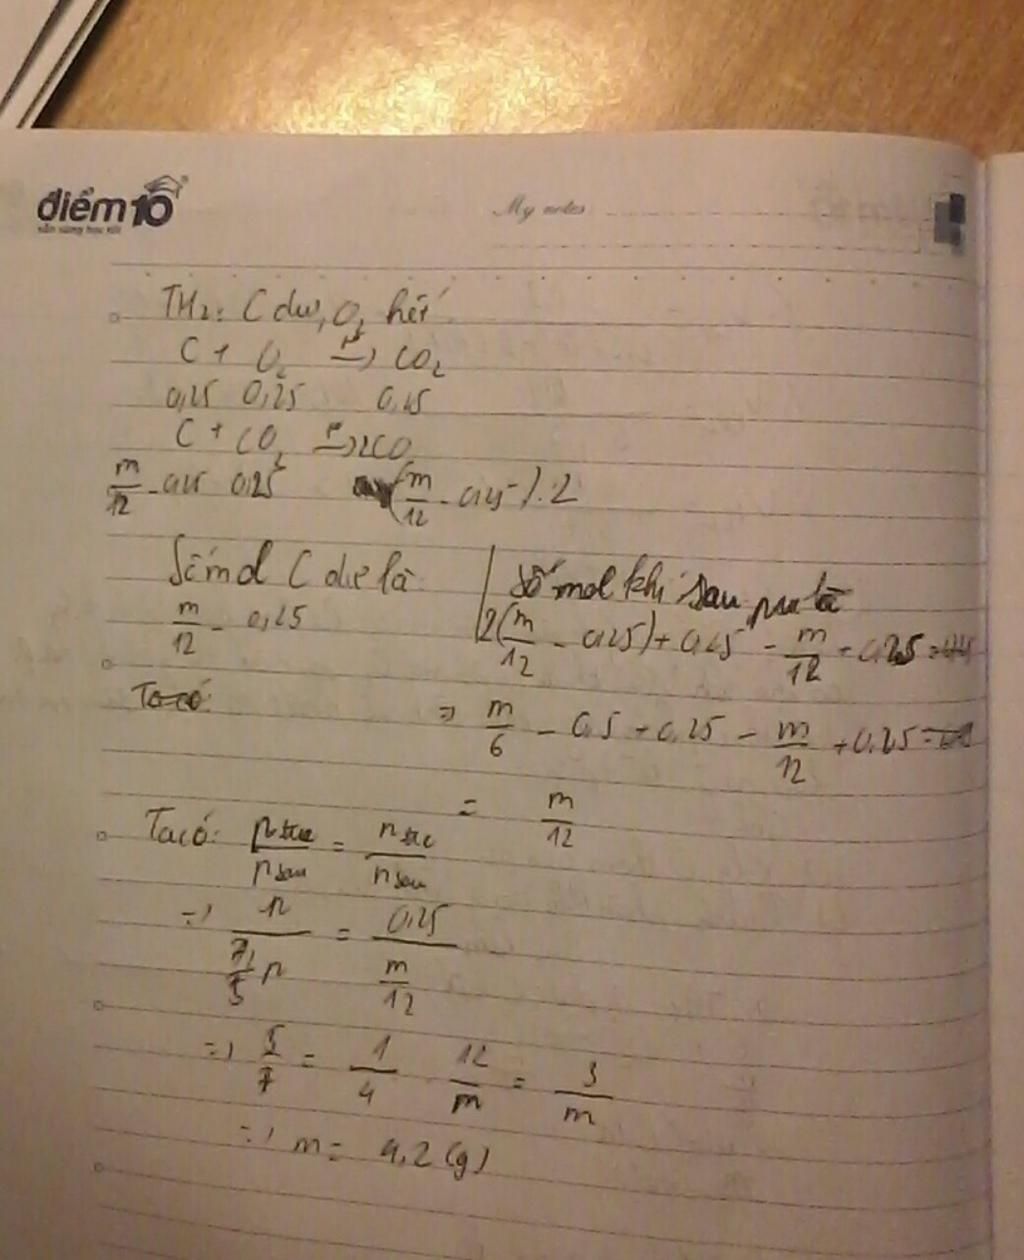 điểm 10
sẵn sàng học tốt
My notes
TH2: C dư, O2 hết
C + O2 → CO2
0,25 0,25 0,25
C + CO2 → 2CO
m/12 - 0,25 0,25 (m/12 - 0,25).2
Số mol C dư là | Số mol khí sau pư là
m/12 - 0,25 2(m/12 - 0,25) + 0,25 - m/12 + 0,25 =
Ta có:
=> m/6 - 0,5 + 0,25 - m/12 + 0,25 =
= m/12
Ta có: Ptrc/Psau = ntrc/nsau
=> P/(7/5 P) = 0,25/(m/12)
=> 5/7 = 1/4 . 12/m = 3/m
=> m = 4,2 (g)